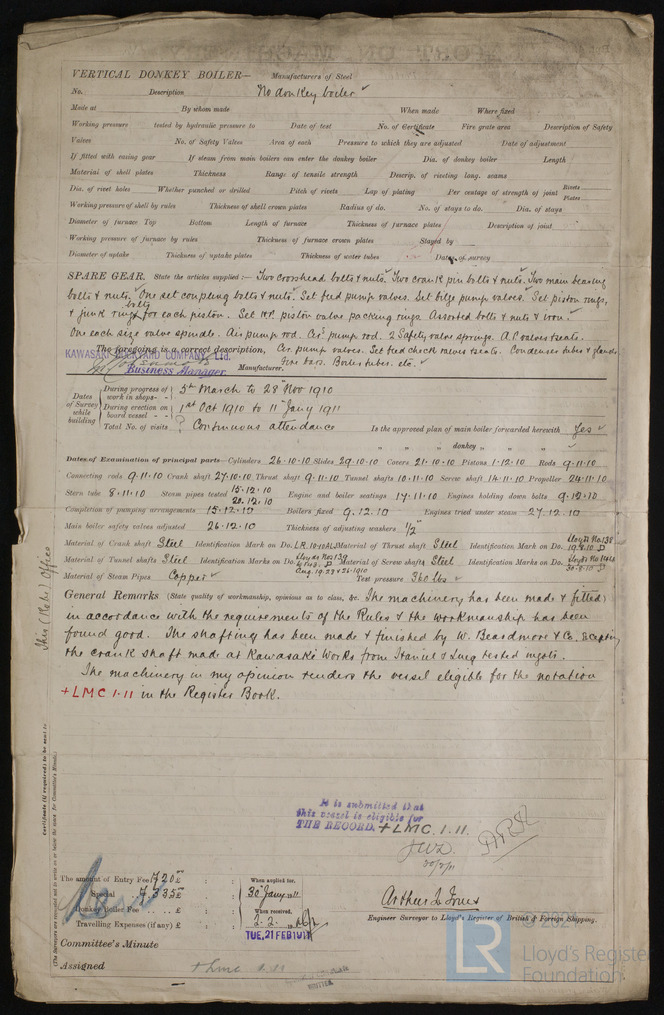 VERTICAL DONKEY BOILER— Manufacturers of Steel
No. Description No donkey boiler
Made at By whom made When made Where fixed
Working pressure tested by hydraulic pressure to Date of test No. of Certificate Fire grate area Description of Safety
Valves No. of Safety Valves Area of each Pressure to which they are adjusted Date of adjustment
If fitted with easing gear If steam from main boilers can enter the donkey boiler Dia. of donkey boiler Length
Material of shell plates Thickness Range of tensile strength Descrip. of riveting long. seams
Dia. of rivet holes Whether punched or drilled Pitch of rivets Lap of plating Per centage of strength of joint Rivets Plates
Working pressure of shell by rules Thickness of shell crown plates Radius of do. No. of stays to do. Dia. of stays
Diameter of furnace Top Bottom Length of furnace Thickness of furnace plates Description of joint
Working pressure of furnace by rules Thickness of furnace crown plates Stayed by
Diameter of uptake Thickness of uptake plates Thickness of water tubes Dates of survey
SPARE GEAR. State the articles supplied:— Two crosshead bolts & nuts. Two crank pin bolts & nuts. Two main bearing
bolts & nuts. One set coupling bolts & nuts. Set feed pump valves. Set bilge pump valves. Set piston rings,
& junk ring bolts for each piston. Set H.P. piston valve packing rings. Assorted bolts & nuts & iron.
One each size valve spindle. Air pump rod. Cir. pump rod. 2 Safety valve springs. A.P. valves & seats.
The foregoing is a correct description, Cir. pump valves. Set feed check valves & seats. Condenser tubes & glands
KAWASAKI DOCKYARD COMPANY, Ltd. Fire bars. Boiler tubes. etc.
Business Manager. Manufacturer.
Dates of Survey while building
During progress of work in shops- - 5th March to 28th Nov 1910
During erection on board vessel - - 1st Oct 1910 to 11th Jany 1911
Total No. of visits ? Continuous attendance Is the approved plan of main boiler forwarded herewith Yes
" " " donkey " " "
Dates of Examination of principal parts—Cylinders 26.10.10 Slides 29.10.10 Covers 21.10.10 Pistons 1.12.10 Rods 9.11.10
Connecting rods 9.11.10 Crank shaft 27.10.10 Thrust shaft 9.11.10 Tunnel shafts 10.11.10 Screw shaft 14.11.10 Propeller 24.11.10
Stern tube 8.11.10 Steam pipes tested 15.12.10 20.12.10 Engine and boiler seatings 17.11.10 Engines holding down bolts 9.12.10
Completion of pumping arrangements 15.12.10 Boilers fixed 9.12.10 Engines tried under steam 27.12.10
Main boiler safety valves adjusted 26.12.10 Thickness of adjusting washers 1/2"
Material of Crank shaft Steel Identification Mark on Do. LR Material of Thrust shaft Steel Identification Mark on Do. Lloyds No. 138 19.8.10
Material of Tunnel shafts Steel Identification Marks on Do. Lloyds No. 139 Material of Screw shafts Steel Identification Marks on Do. Lloyds No.
Material of Steam Pipes Copper Test pressure 360 lbs
General Remarks (State quality of workmanship, opinions as to class, &c. The machinery has been made & fitted
in accordance with the requirements of the Rules & the workmanship has been
found good. The shafting has been made & finished by W. Beardmore & Co. Excepting
the crank shaft made at Kawasaki Works from Haniel & Lueg tested ingots.
The machinery in my opinion renders the vessel eligible for the notation
+LMC 1.11 in the Register Book.
It is submitted that
this vessel is eligible for
THE RECORD. +LMC. 1.11.
The amount of Entry Fee £
Special £
Donkey Boiler Fee £
Travelling Expenses (if any) £
When applied for, 30 Jany 1911
When received,
TUE. 21 FEB 1911
Engineer Surveyor to Lloyd's Register of British & Foreign Shipping.
Committee's Minute
Assigned +LMC 1.11
WRITTEN
(The Surveyors are requested not to write on or below the space for Committee's Minute.)
LR
Lloyd's Register
Foundation